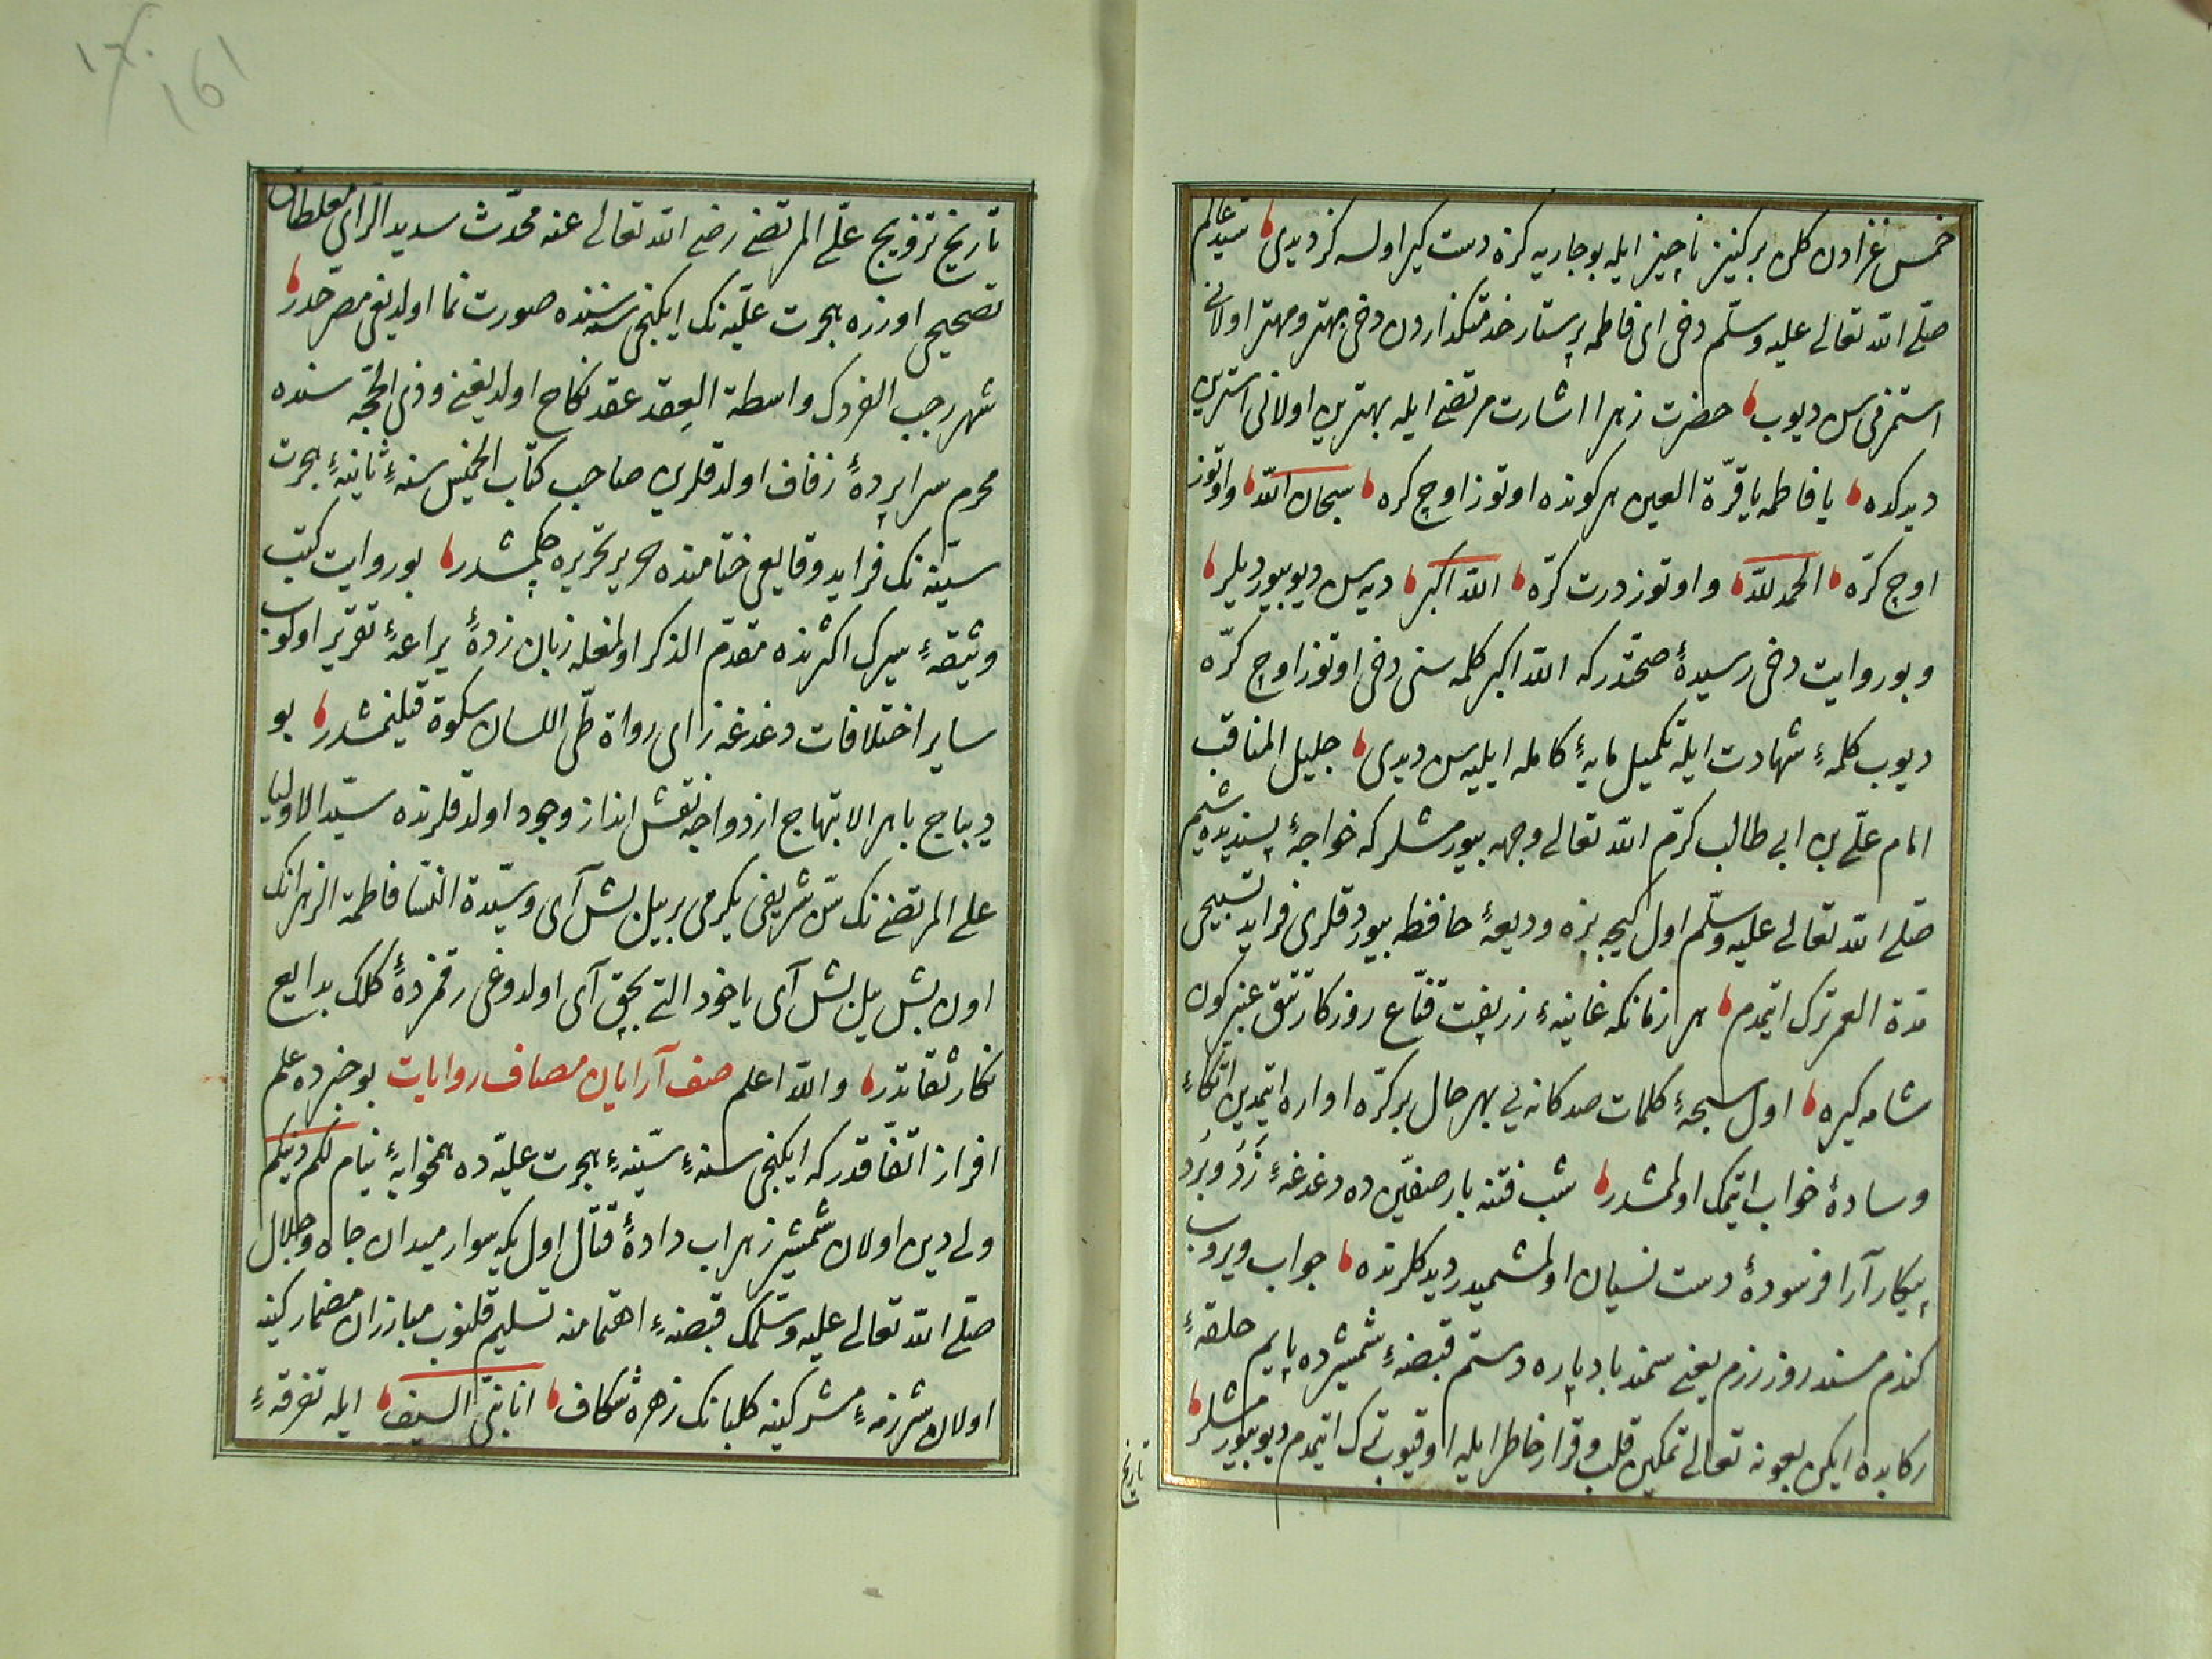 خمس غزادن كلن بر كنيز ناچيز ايله بو جاريه كزه دست كير اولسه كز ديدى سيد عالم
صلى الله تعالى عليه وسلم دخى اى فاطمه پرستار خدمتكذاردن دخى بهتر ومهتر اولانى
استمزمى سن ديوب حضرت زهرا اشارت مرتضى ايله بهترين اولانى استرين
ديدكده يا فاطمه يا قرة العين هر كونده اوتوز اوچ كره سبحان الله واوتوز
اوچ كره الحمد لله واوتوز درت كره الله اكبر ديه سن ديو بيورديلر
وبو روايت دخى رسيدهٔ صحتدر كه الله اكبر كلمه سنى دخى اوتوز اوچ كره
ديوب كلمهٔ شهادت ايله تكميل مايهٔ كامله ايليه سن ديدى جليل المناقب
امام على بن ابى طالب كرم الله تعالى وجهه بيورمشلر كه خواجهٔ پسنديده شيم
صلى الله تعالى عليه وسلم اول كيجه بزه وديعهٔ حافظه بيوردقلرى فرايد تسبيحى
مدة العمر ترك ايتمدم هر زمانكه غانيهٔ زربفت قناع روزكار تتق عنبر كون
شامه كيره اول سبحهٔ كلمات صد كانه يى بهر حال بر كره اداره ايتمدين اتكاء
وسادهٔ خواب ايتمك اولمشدر شب فتنه بار صفين ده دغدغهٔ زد وبرد
پيكار آرا فرسودهٔ دست نسيان اولمشميدر ديدكلرنده جواب ويروب
كندم مسند روز رزم يعنى سمند باد پاره دستم قبضهٔ شمشيرده پايم حلقهٔ
ركابده ايكن بعونه تعالى تمكين قلب وقرار خاطر ايله اوقيوب ترك ايتمدم ديو بيورمشلر
تاريخ
تاريخ تزويج على المرتضى رضى الله تعالى عنه محدث سديد الراى مغلطاى
تصحيحى اوزره هجرت عليه نك ايكنجى سنه سنده صورت نما اولديغى مصرحدر
شهر رجب الفردك واسطة العقد عقد نكاح اولديغنى وذى الحجه سنده
محرم سراپردهٔ زفاف اولدقلرين صاحب كتاب الخميس سنهٔ ثانيهٔ هجرت
سنيه نك فرايد وقايعى ختامنده حرير تحريره چكمشدر بو روايت كتب
وثيقهٔ سيرك اكثرنده مقدم الذكر اولمغله زبان زدهٔ يراعهٔ تقرير اولنوب
ساير اختلافات دغدغه زاى رواة طى اللسان سكوة قيلنمشدر بو
ديباج باهر الابتهاج ازدواجه نقش انداز وجود اولدقلرنده سيد الاوليا
على المرتضى نك سن شريفى يكرمى بر ييل بش آى وسيدة النسا فاطمة الزهرانك
اون بش ييل بش آى ياخود التى بچق آى اولدوغى رقمزدهٔ كلك بدايع
نكار ثقاتدر والله اعلم صف آرايان مصاف روايات بو خبرده علم
افراز اتفاقدر كه ايكنجى سنهٔ سنيهٔ هجرت عليه ده همخوابهٔ نيام لكم دينكم
ولى دين اولان شمشير زهراب دادهٔ قتال اول يكه سوار ميدان جاه وجلال
صلى الله تعالى عليه وسلمك قبضهٔ اهتمامنه تسليم قلنوب مبارزان مضمار كينه
اولان شرزمهٔ مشركينه كلبانك زهره شكاف انا نبى السيف ايله تفرقهٔ
١٦٠
161